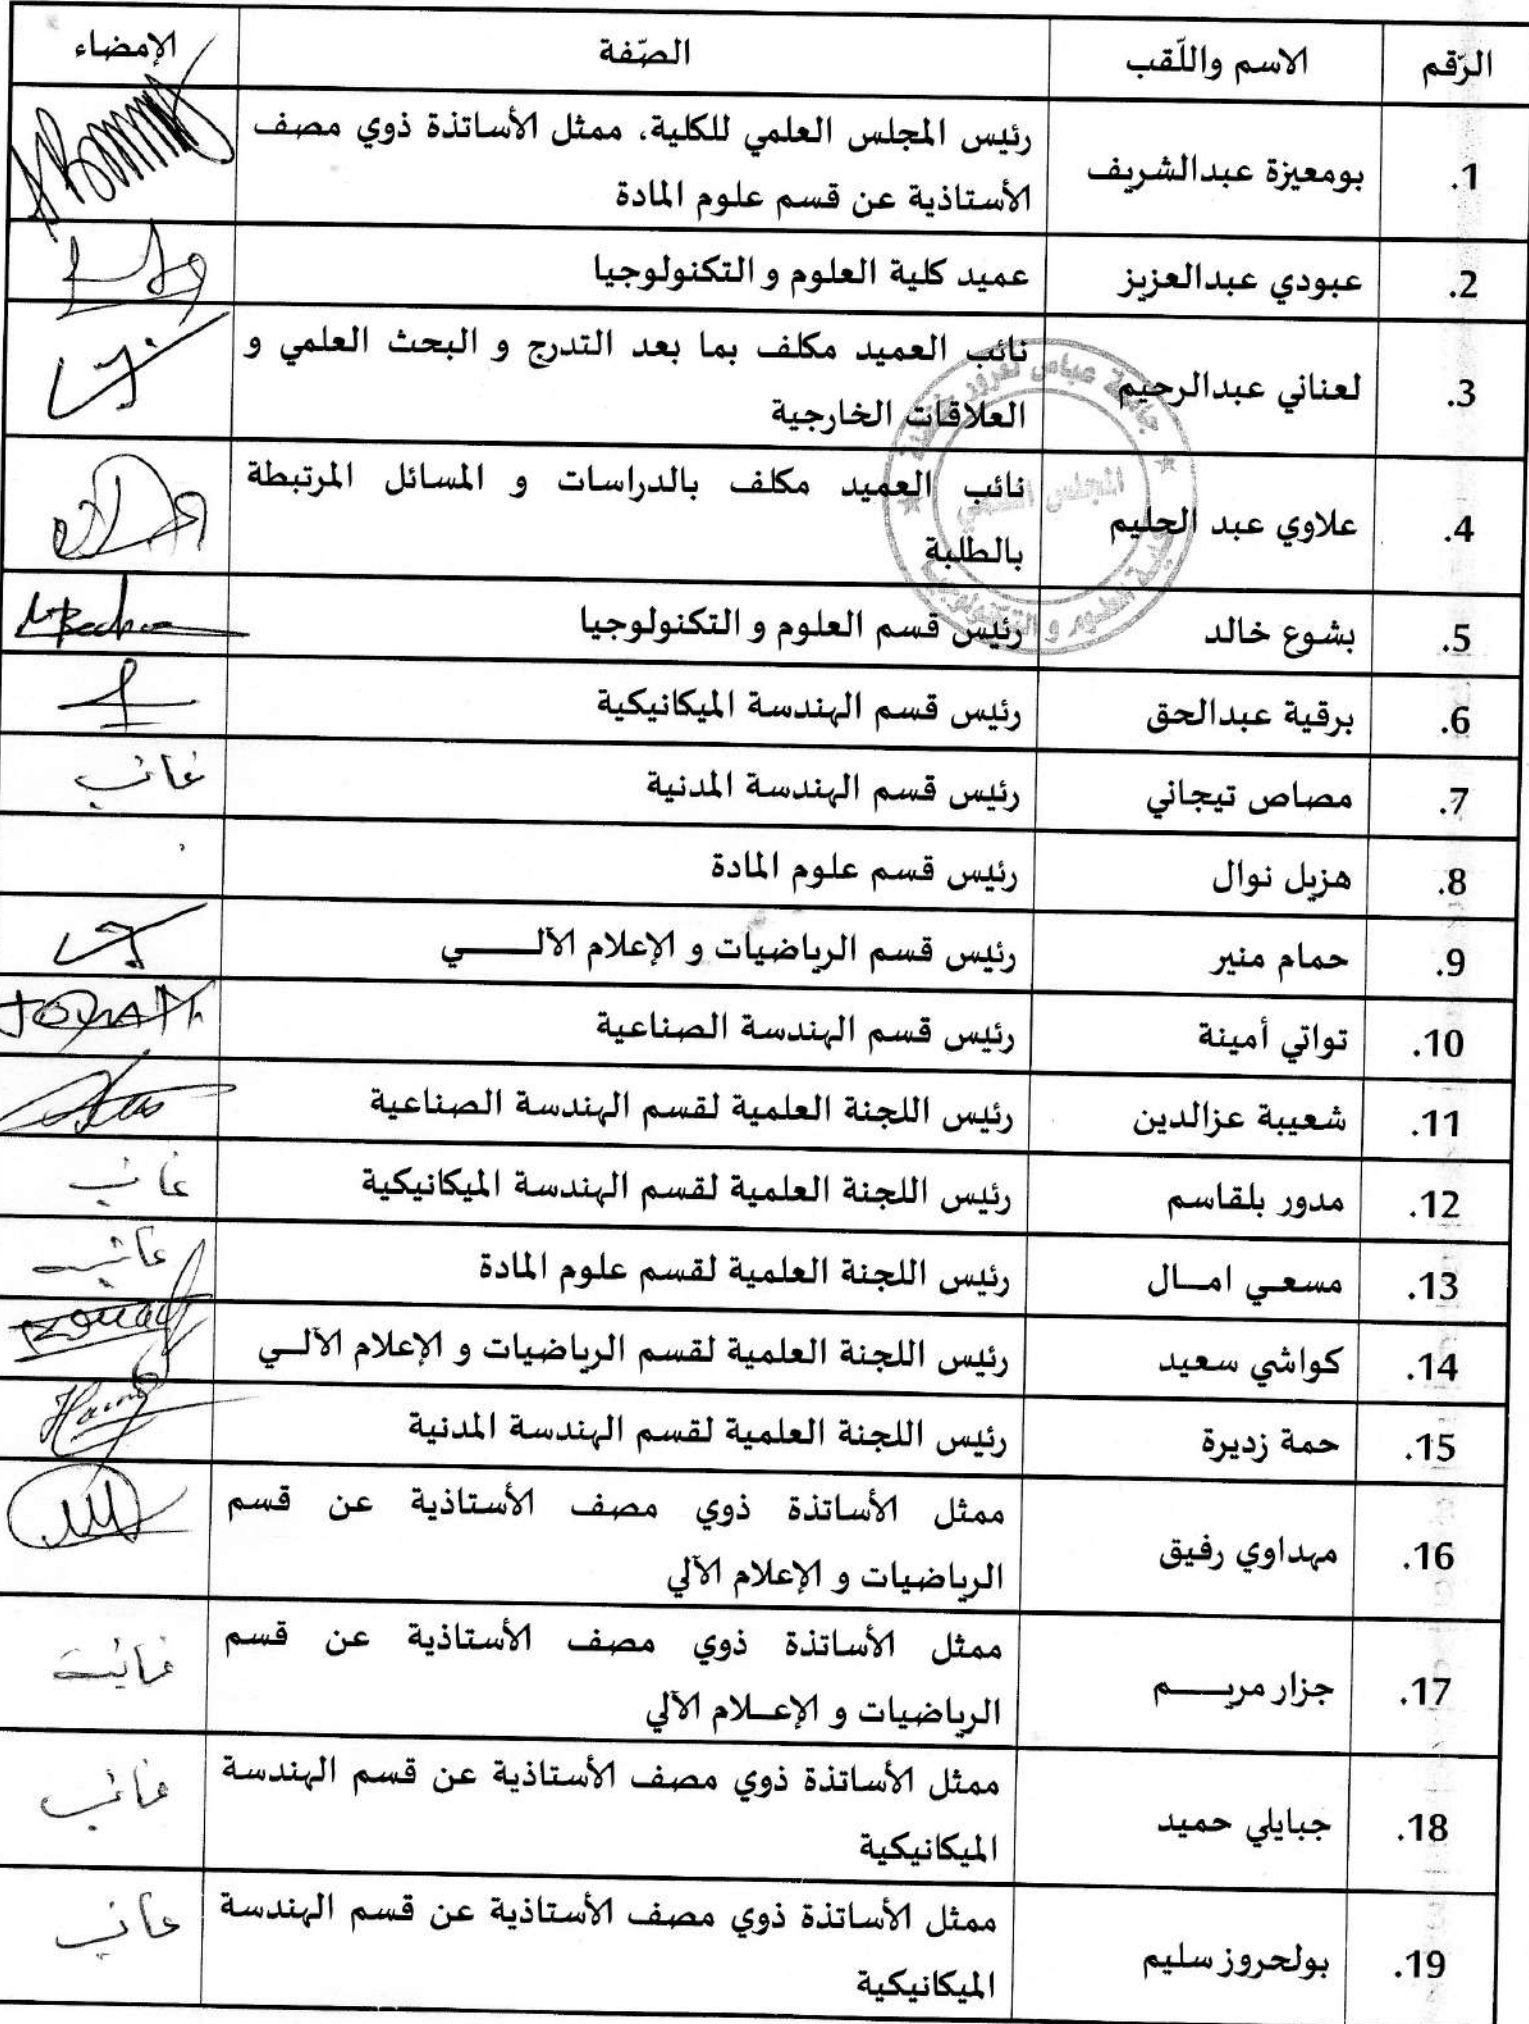 الرّقم الاسم واللّقب الصّفة الإمضاء
1. بومعيزة عبدالشريف رئيس المجلس العلمي للكلية، ممثل الأساتذة ذوي مصف
الأستاذية عن قسم علوم المادة
2. عبودي عبدالعزيز عميد كلية العلوم و التكنولوجيا
3. لعناني عبدالرحيم نائب العميد مكلف بما بعد التدرج و البحث العلمي و
العلاقات الخارجية
جامعة عباس لغرور خنشلة
المجلس العلمي
كلية العلوم و التكنولوجيا
4. علاوي عبد الحليم نائب العميد مكلف بالدراسات و المسائل المرتبطة
بالطلبة
5. بشوع خالد رئيس قسم العلوم و التكنولوجيا
6. برقية عبدالحق رئيس قسم الهندسة الميكانيكية
7. مصاص تيجاني رئيس قسم الهندسة المدنية غائب
8. هزيل نوال رئيس قسم علوم المادة
9. حمام منير رئيس قسم الرياضيات و الإعلام الآلــــــي
10. تواتي أمينة رئيس قسم الهندسة الصناعية
11. شعيبة عزالدين رئيس اللجنة العلمية لقسم الهندسة الصناعية
12. مدور بلقاسم رئيس اللجنة العلمية لقسم الهندسة الميكانيكية غائب
13. مسعـي امــال رئيس اللجنة العلمية لقسم علوم المادة غائب
14. كواشي سعيد رئيس اللجنة العلمية لقسم الرياضيات و الإعلام الآلــي
15. حمة زديرة رئيس اللجنة العلمية لقسم الهندسة المدنية
16. مهداوي رفيق ممثل الأساتذة ذوي مصف الأستاذية عن قسم
الرياضيات و الإعلام الآلي
17. جزار مريـــــم ممثل الأساتذة ذوي مصف الأستاذية عن قسم
الرياضيات و الإعــلام الآلي
18. جبايلي حميد ممثل الأساتذة ذوي مصف الأستاذية عن قسم الهندسة غائب
الميكانيكية
19. بولحروز سليم ممثل الأساتذة ذوي مصف الأستاذية عن قسم الهندسة غائب
الميكانيكية